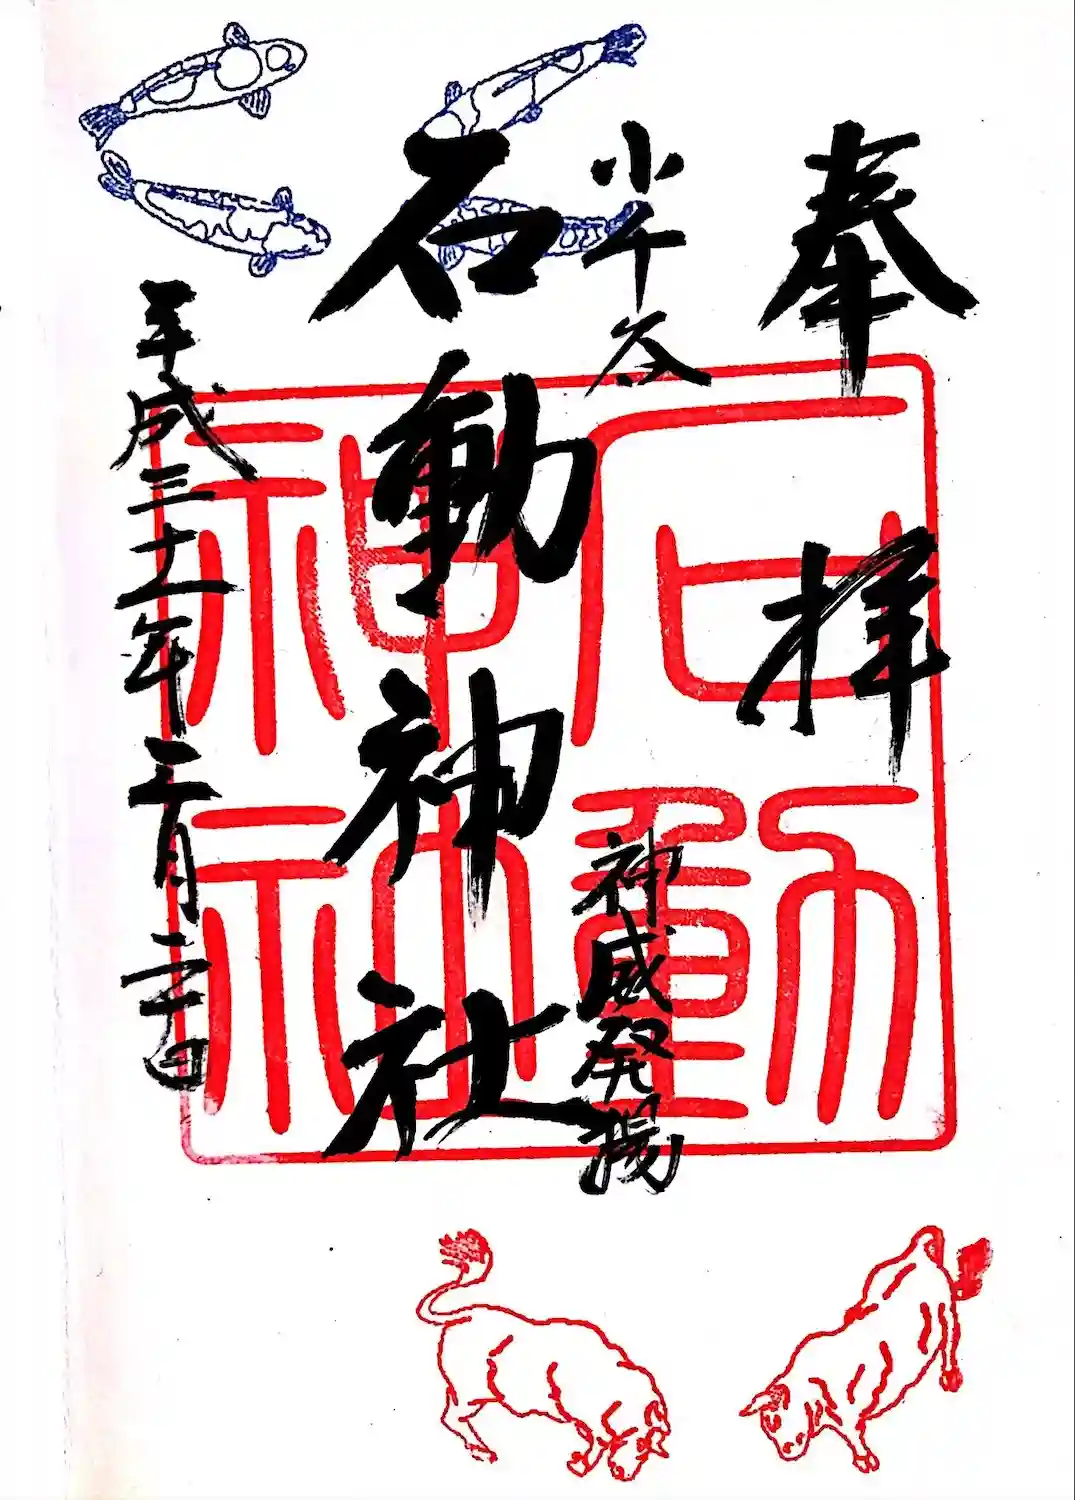 奉拝
小千谷
神威発揚
石動神社
平成三十一年三月二十日
石動
神社